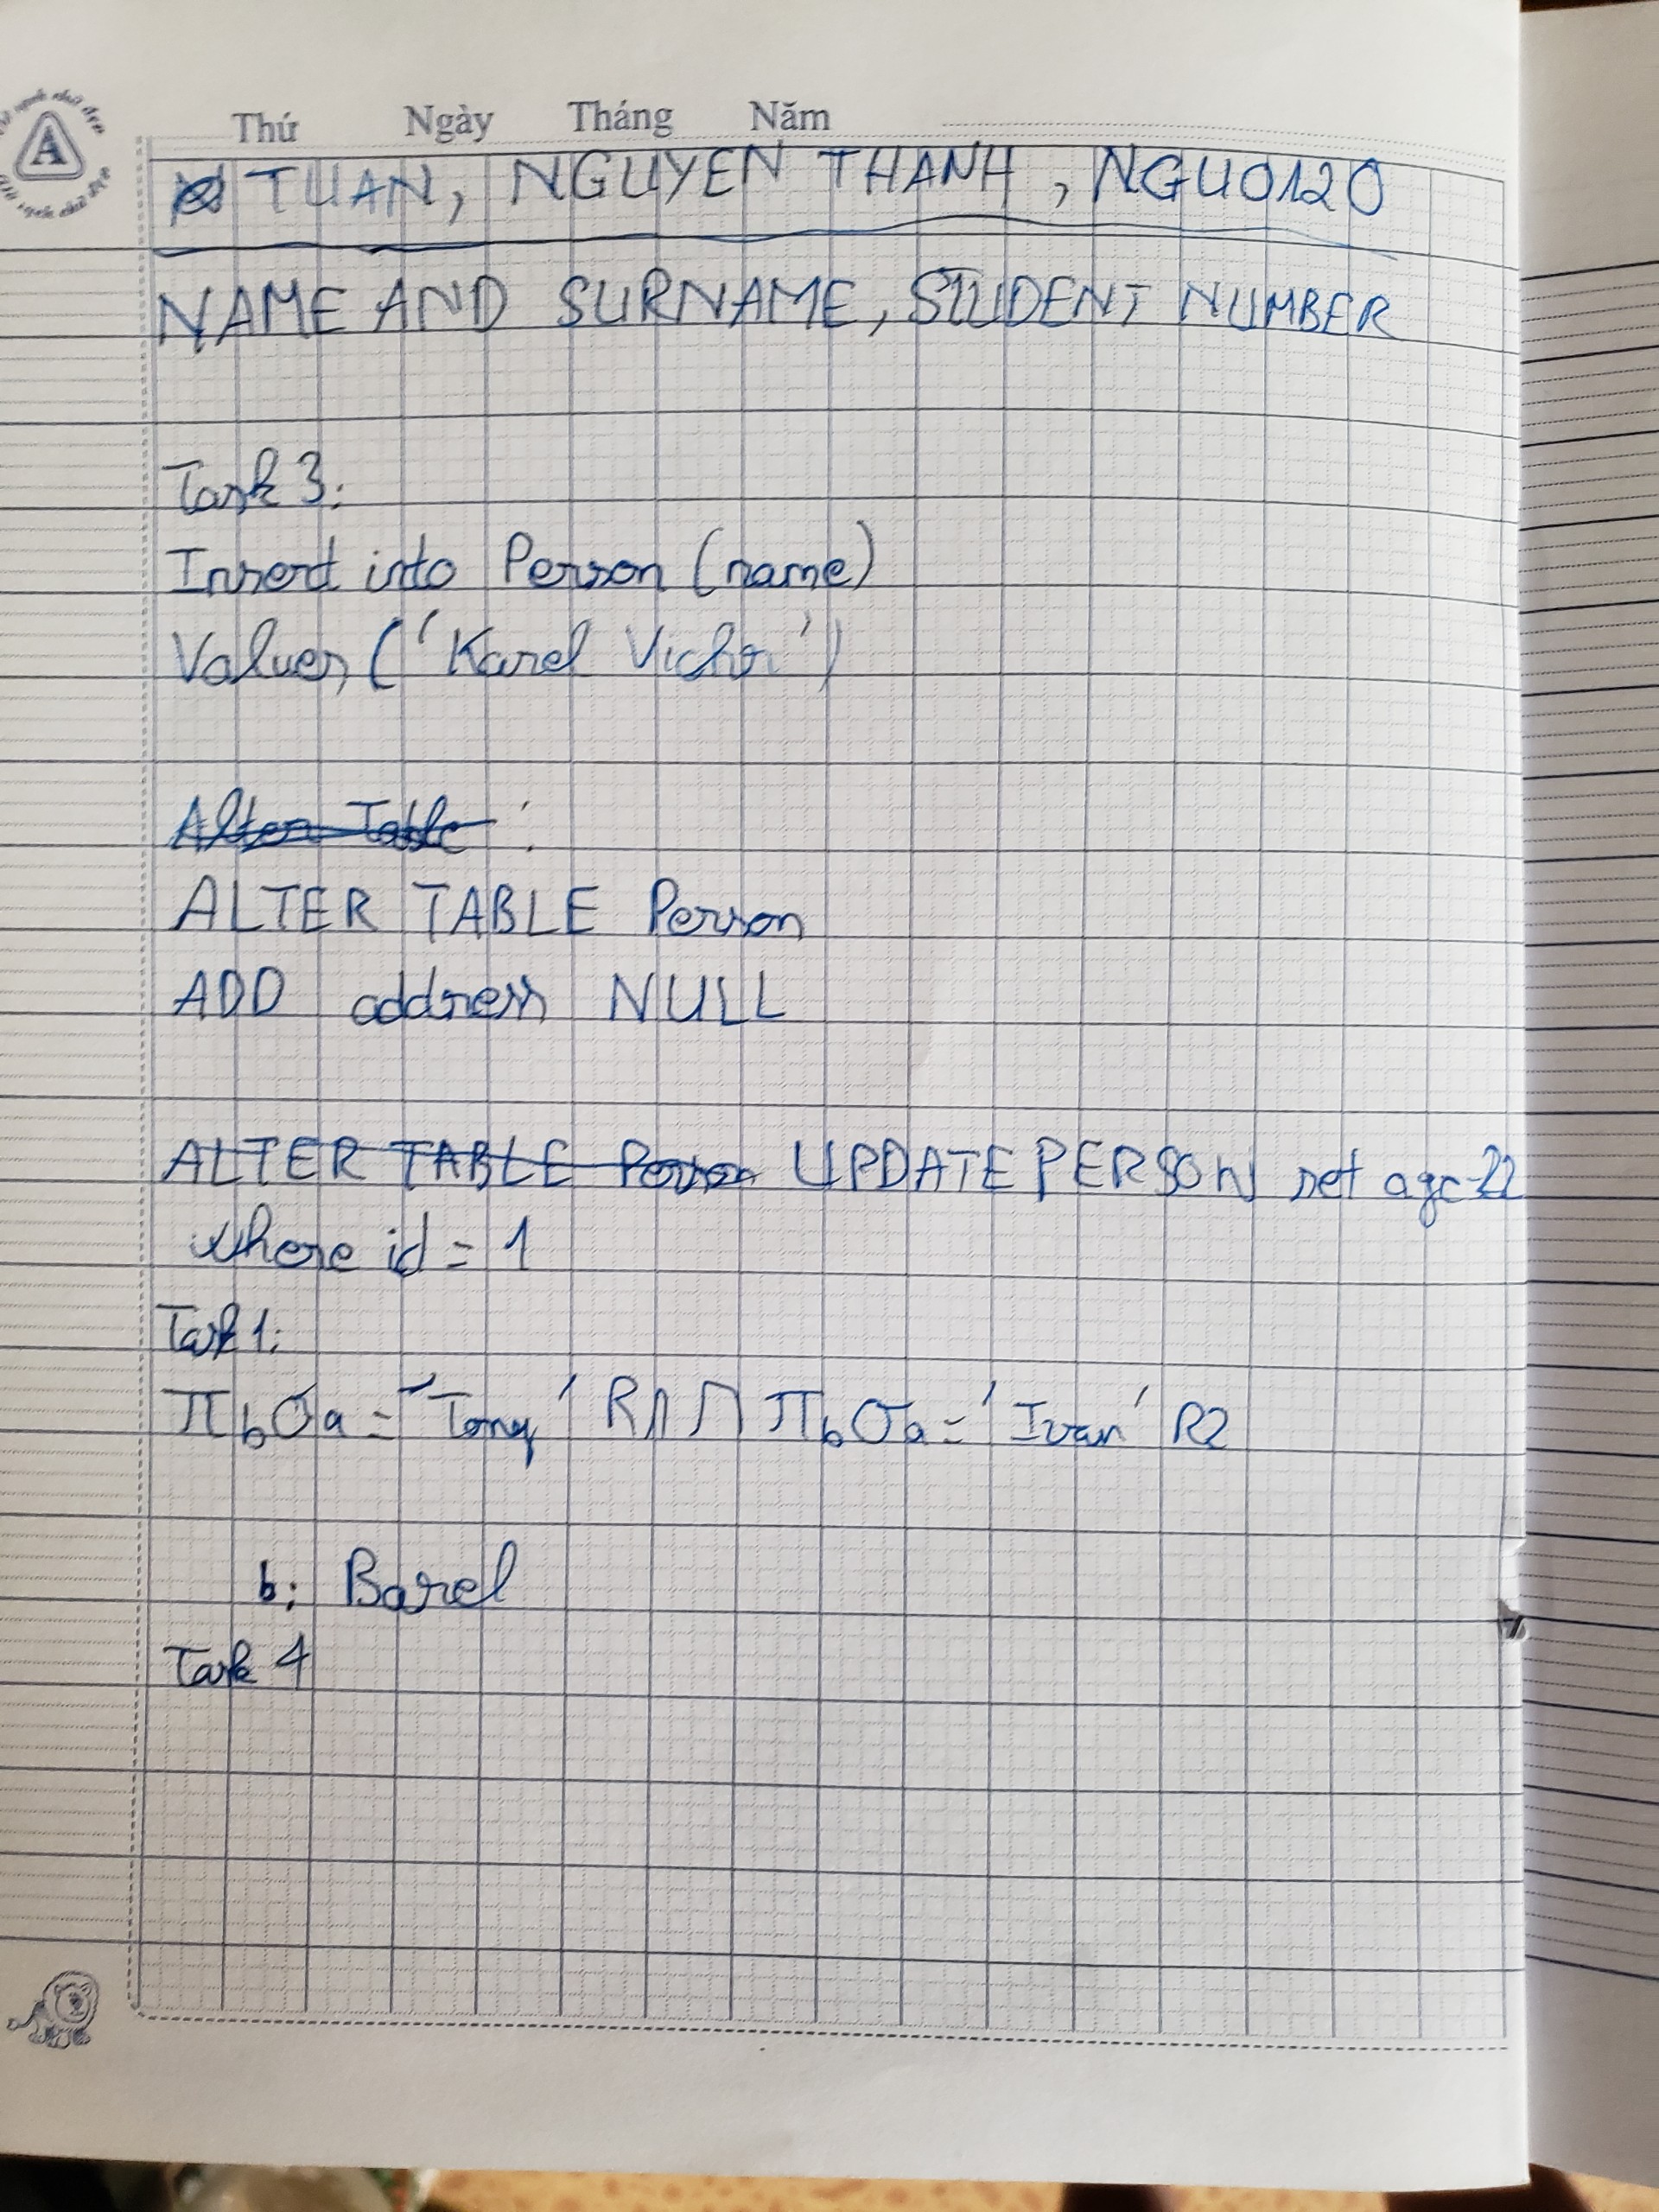 Thứ Ngày Tháng Năm
TUAN, NGUYEN THANH, NGU0120
NAME AND SURNAME, STUDENT NUMBER
Task 3:
Insert into Person (name)
Values ('Karel Vichr')
Alter Table :
ALTER TABLE Person
ADD address NULL
ALTER TABLE Person UPDATE PERSON set age=22
where id = 1
Task 1:
π b σ a = 'Tony' R1 ∩ π b σ a = 'Ivan' R2
b: Barel
Task 4
A